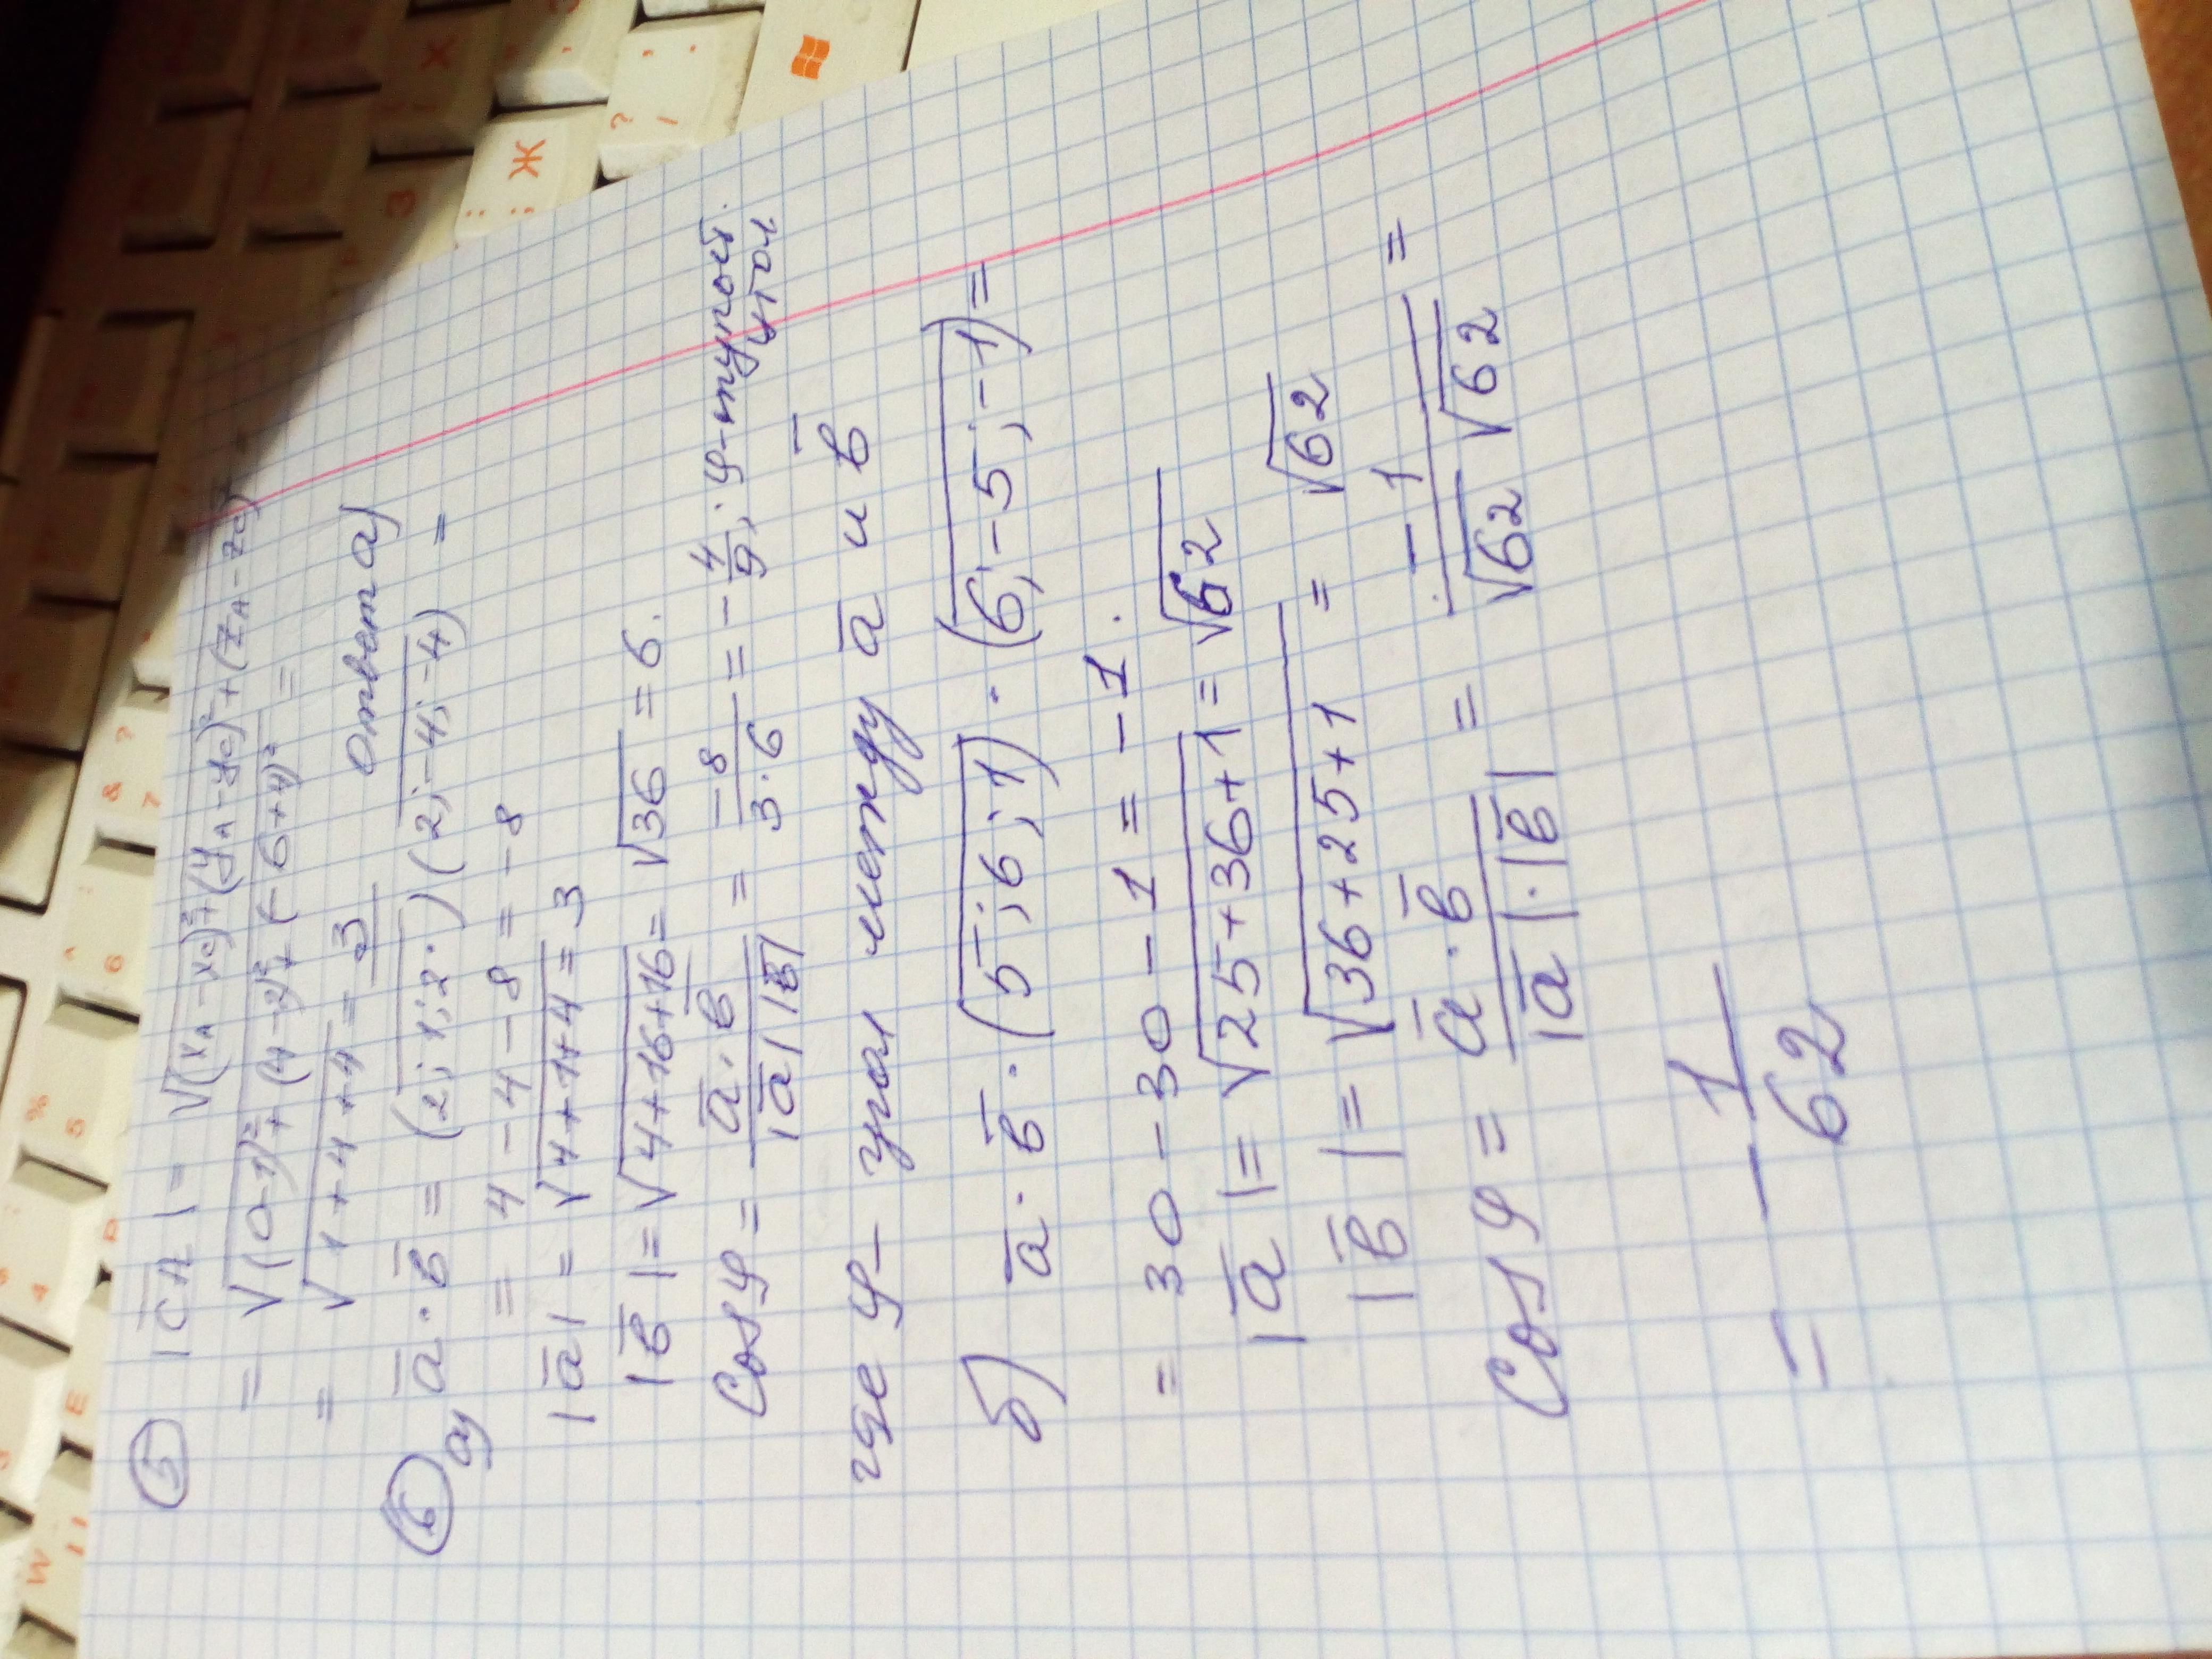 5 |C̅A̅| = √(xA - xc)² + (yA - yc)² + (zA - zc)²
= √(0-1)² + (4-2)² + (-6+4)² =
= √1+4+4 = 3 Ответ а)
6 а) a̅·в̅ = (2;1;2·)(2;-4;-4) =
= 4-4-8 = -8
|a̅| = √4+1+4 = 3
|в̅| = √4+16+16 = √36 = 6.
Cosφ = a̅·в̅ / |a̅||в̅| = -8 / 3·6 = -4/9; φ-тупой угол.
где φ- угол между a̅ и в̅
б) a̅·в̅·(5;6;1)·(6;-5;-1) =
= 30-30-1 = -1.
|a̅| = √25+36+1 = √62
|в̅| = √36+25+1 = √62
Cosφ = a̅·в̅ / |a̅|·|в̅| = -1 / √62 √62 =
= - 1/62
Ж
Х
З
?
%
5
6
7
8
&
4
E
W